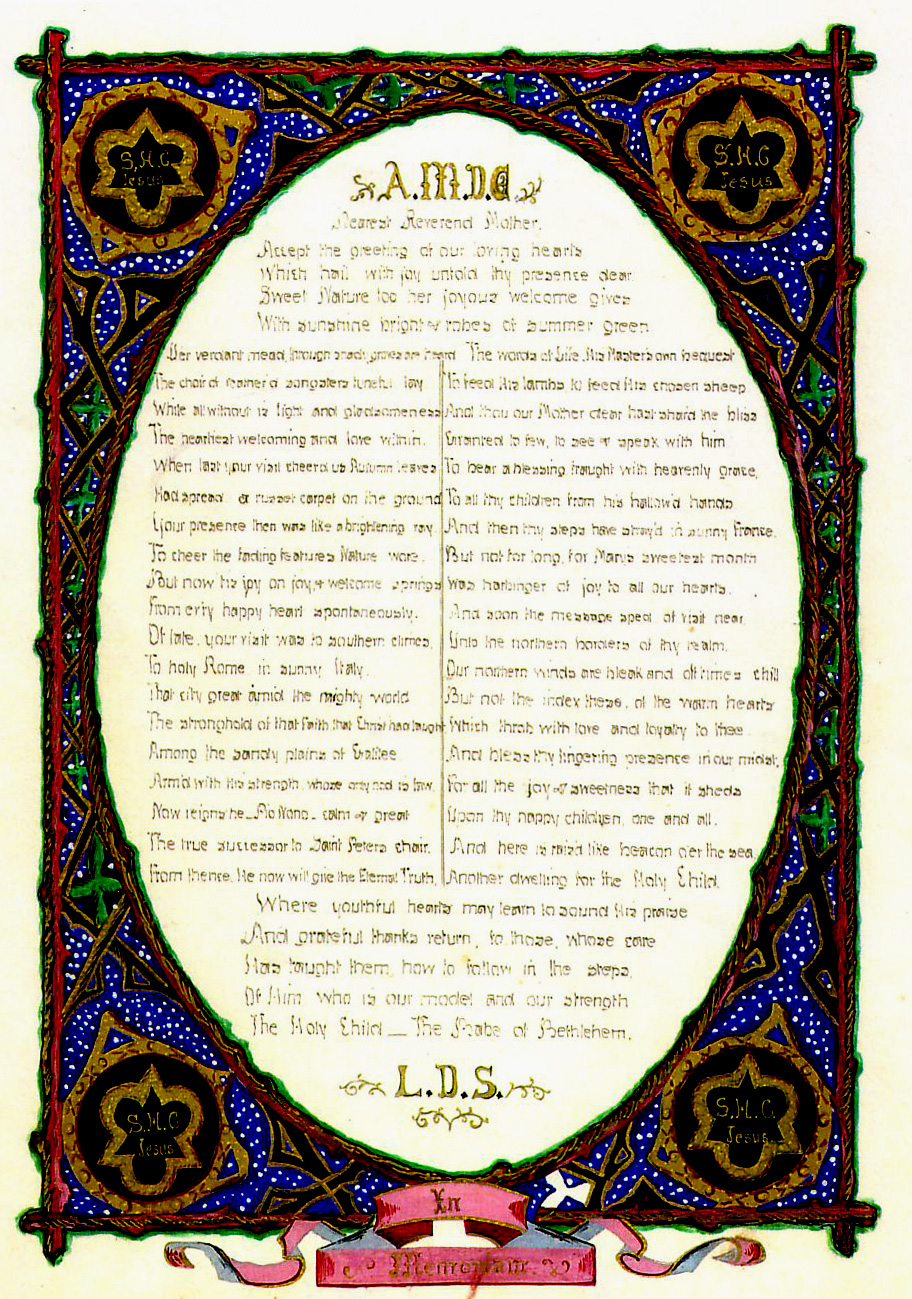 S.H.C
Jesus
S.H.C
Jesus
A.M.D.G
Dearest Reverend Mother.
Accept the greeting of our loving hearts
Which hail with joy untold thy presence dear.
Sweet Nature too her joyous welcome gives
With sunshine bright & robes of summer green.
Her verdant mead, through shady groves are heard
The choir of feather'd songsters tuneful lay
While all without is light and gladsomeness
The heartiest welcoming and love within.
When last your visit cheer'd us Autumn leaves
Had spread a russet carpet on the ground
Your presence then was like a brightening ray
To cheer the fading features Nature wore.
But now tis joy on joy, & welcome springs
From ev'ry happy heart spontaneously.
Of late, your visit was to southern climes,
To holy Rome in sunny Italy.
That city great amid the mighty world
The stronghold of that Faith that Christ had taught
Among the sandy plains of Galilee
Arm'd with His strength, whose only nod is law.
Now reigns he_Pio Nono_ calm & great
The true successor to Saint Peters chair.
From thence, He now will give the Eternal Truth,
The words of Life, His Masters own bequest
To feed His lambs to feed His chosen sheep
And thou our Mother dear hast shar'd the bliss
Granted to few, to see & speak with him
To hear a blessing fraught with heavenly grace,
To all thy children from his hallow'd hands
And then thy steps have stray'd in sunny France.
But not for long, for Marys sweetest month
Was harbinger of joy to all our hearts.
And soon the message sped of visit near
Unto the northern borders of thy realm.
Our northern winds are bleak and oft times chill
But not the index these, of the warm hearts
Which throb with love and loyalty to thee.
And bless thy lingering presence in our midst,
For all the joy & sweetness that it sheds
Upon thy happy children, one and all.
And here is rais'd like beacon o'er the sea,
Another dwelling for the Holy Child.
Where youthful hearts may learn to sound His praise
And grateful thanks return, to those, whose care
Has taught them, how to follow in the steps,
Of Him who is our model and our strength
The Holy Child__The Babe of Bethlehem.
L.D.S.
S.H.C
Jesus
S.H.C.
Jesus
In
Memoriam.